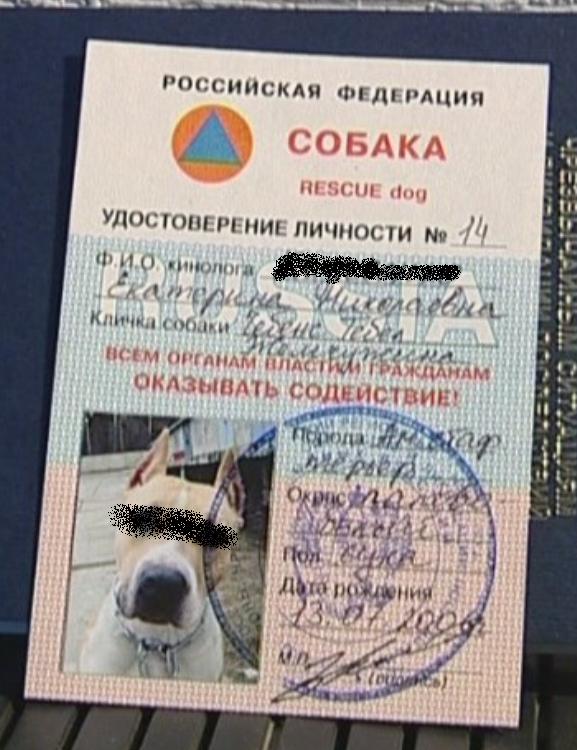 РОССИЙСКАЯ ФЕДЕРАЦИЯ
СОБАКА
RESCUE dog
УДОСТОВЕРЕНИЕ ЛИЧНОСТИ № 14
Ф.И.О. кинолога
Екатерина Николаевна
RUSSIA
Кличка собаки
ВСЕМ ОРГАНАМ ВЛАСТИ И ГРАЖДАНАМ
ОКАЗЫВАТЬ СОДЕЙСТВИЕ!
Порода Ам. стаф
терьер
Окрас палево
белый
Пол сука
Дата рождения
13.07.200
М.П. (подпись)